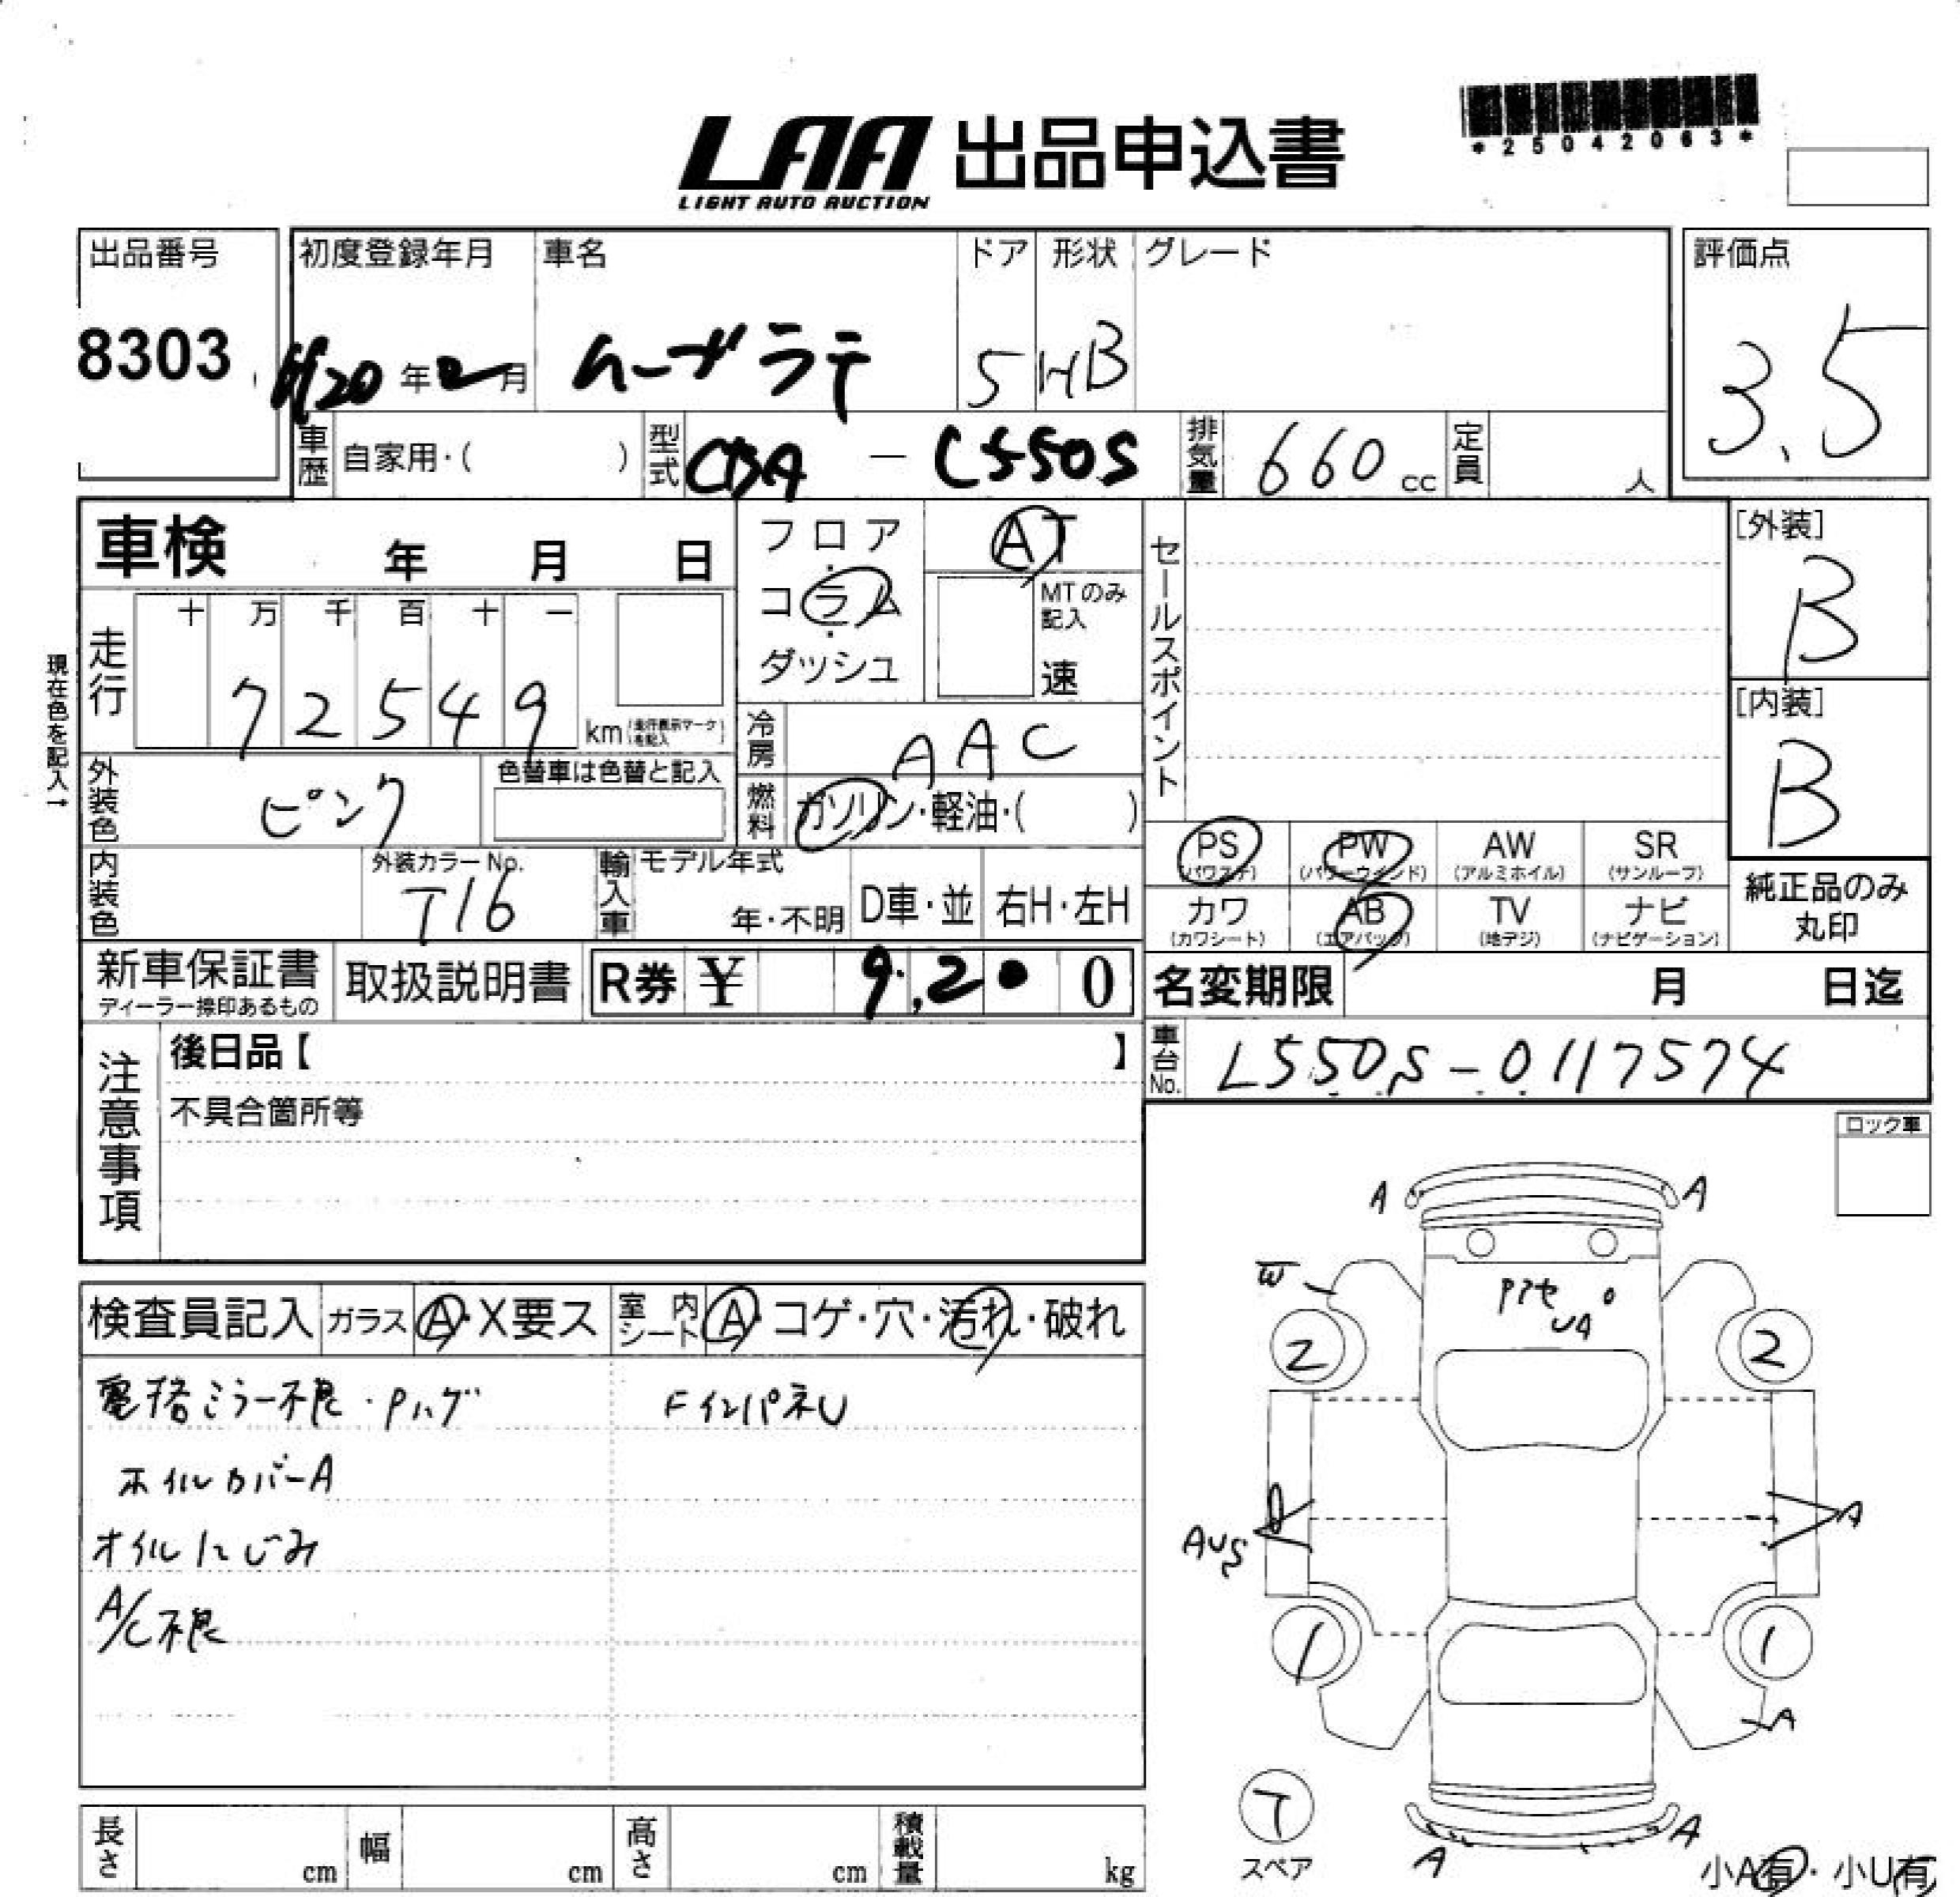 *25042063*
LAA 出品申込書
LIGHT AUTO AUCTION
出品番号 初度登録年月 車名 ドア 形状 グレード 評価点
8303 H20年2月 ムーヴラテ 5 HB 3.5
車歴 自家用・( ) 型式 CBA - L550S 排気量 660cc 定員 人
車検 年 月 日 フロア・コラム・ダッシュ AT
MTのみ記入 速
現在色を記入→
走行 十 万 千 百 十 一
72549 km (走行表示マークを記入)
冷房 AAC
外装色 ピンク 色替車は色替と記入
燃料 ガソリン・軽油・( )
内装色 外装カラーNo. T16 輸入車 モデル年式 年・不明 D車・並 右H・左H
セールスポイント
[外装] B
[内装] B
PS (パワステ) PW (パワーウインド) AW (アルミホイル) SR (サンルーフ)
カワ (カワシート) AB (エアバッグ) TV (地デジ) ナビ (ナビゲーション)
純正品のみ丸印
新車保証書 ディーラー捺印あるもの 取扱説明書 R券 ¥ 9,200
名変期限 月 日迄
車台No. L550S-0117574
注意事項 後日品【 】
不具合箇所等
ロック車
検査員記入 ガラス A・X要ス 室内シート A・コゲ・穴・汚れ・破れ
電格ミラー不良・Pハゲ FインパネU
ホイルカバーA
オイルにじみ
A/C不良
A A
W
アセ
UA
2 2
AUS A
1 1
A
T
スペア
A A
小A有・小U有
長さ cm 幅 cm 高さ cm 積載量 kg